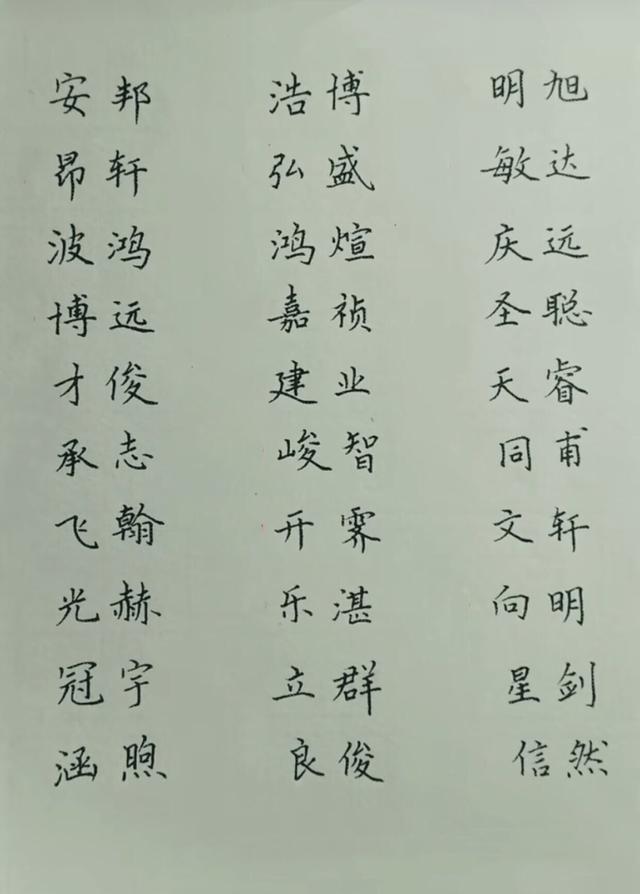 安邦 浩博 明旭
昂轩 弘盛 敏达
波鸿 鸿煊 庆远
博远 嘉祯 圣聪
才俊 建业 天睿
承志 峻智 同甫
飞翰 开霁 文轩
光赫 乐湛 向明
冠宇 立群 星剑
涵煦 良俊 信然